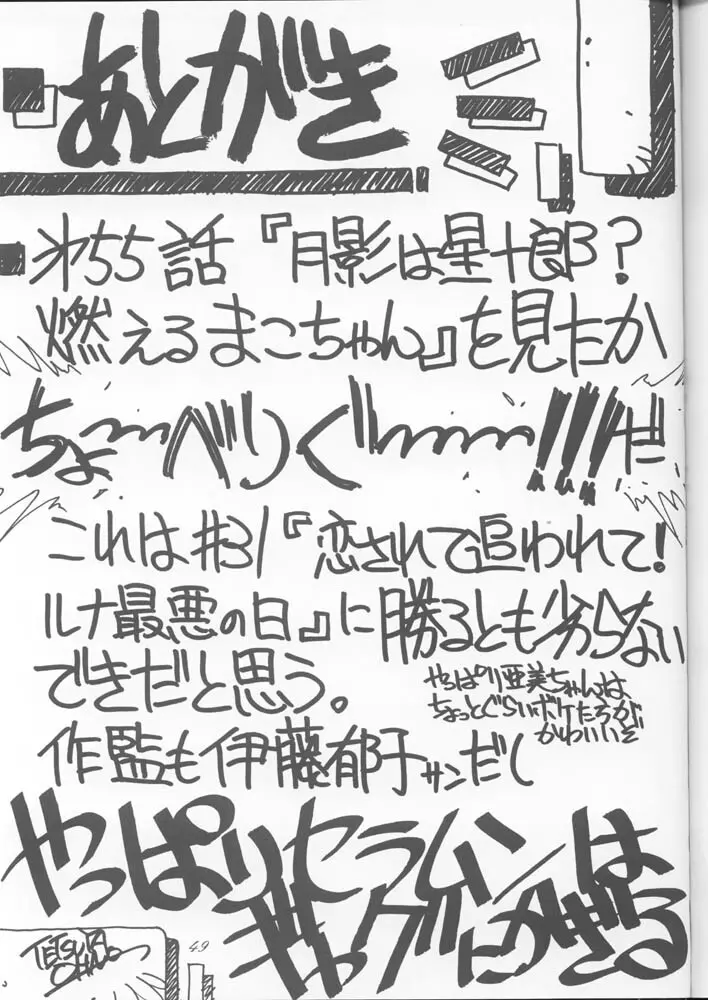 あとがき
第55話『月影は星十郎?
燃えるまこちゃん』を見たか
ちょ〜〜べりぐ〜〜〜!!!だ
これは#31『恋されて追われて!
ルナ最悪の日』に勝るとも劣らない
できだと思う。
やっぱり亜美ちゃんは
ちょっとぐらいボケたろが
かわいいぞ
作監も伊藤郁子サンだし
やっぱりセラムンは
ギャグにかぎる
49